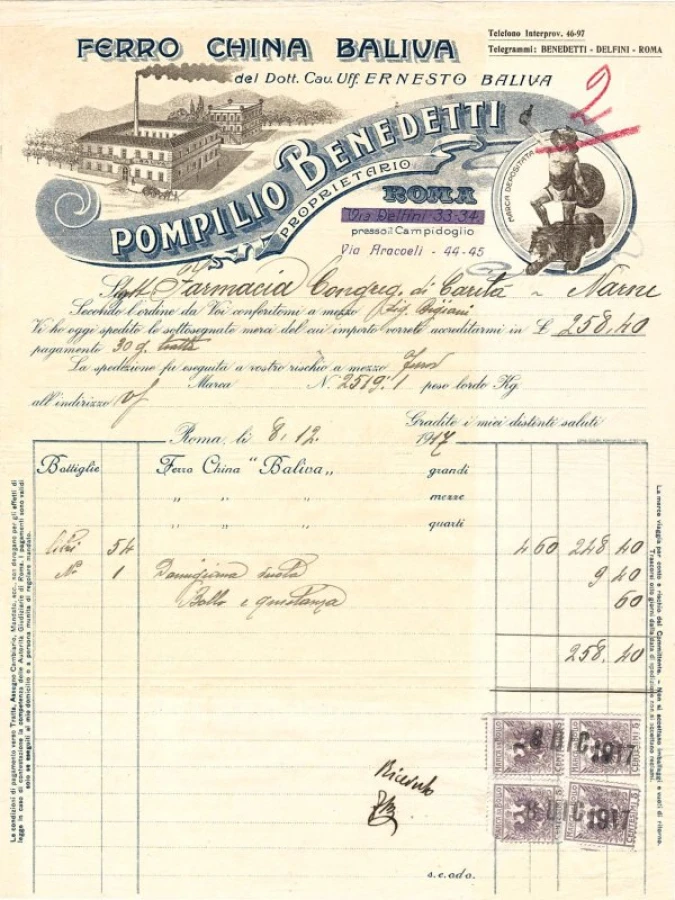 FERRO CHINA BALIVA
Telefono Interprov. 46-97
Telegrammi: BENEDETTI - DELFINI - ROMA
del Dott. Cav. Uff. ERNESTO BALIVA
2
POMPILIO BENEDETTI
PROPRIETARIO
ROMA
Via Delfini 33-34
presso il Campidoglio
Via Aracoeli - 44-45
MARCA DEPOSITATA
Farmacia Congreg. di Carità - Narni
Secondo l'ordine da Voi conferitomi a mezzo Sig.
Vi ho oggi spedito le sottosegnate merci del cui importo vorrete accreditarmi in £ 258,40
pagamento 30 g. tratta
La spedizione fu eseguita a vostro rischio a mezzo
Marca N. 2519. 1 peso lordo Kg.
all'indirizzo
Gradite i miei distinti saluti
Roma, li 8. 12. 1917
Bottiglie Ferro China "Baliva" grandi
" " " mezze
" " " quarti
Litri 54 4 60 248 40
No 1 Damigiana vuota 9 40
Bollo e quietanza 60
258. 40
MARCA DA BOLLO CENTESIMI 5
MARCA DA BOLLO CENTESIMI 5
8 DIC 1917
MARCA DA BOLLO CENTESIMI 5
MARCA DA BOLLO CENTESIMI 5
8 DIC 1917
Ricevuto
s. e. o d o.
Le condizioni di pagamento verso Tratta, Assegno Cambiario, Mandato, ecc., non derogano per gli effetti di
legge in caso di contestazione la competenza delle Autorità Giudiziarie di Roma. I pagamenti sono validi
solo se eseguiti al mio domicilio o a persona munita di regolare mandato.
La merce viaggia per conto e rischio del Committente. - Non si accettano imballaggi e vuoti di ritorno.
Trascorsi otto giorni dalla data di spedizione non si accettano reclami.